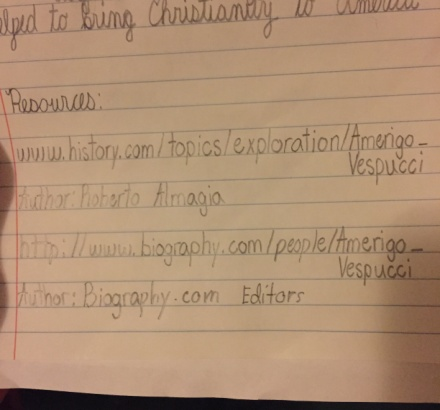 elped to bring Christianity to America
Resources:
www.history.com/topics/exploration/Amerigo-
Vespucci
Author: Roberto Almagia
http://www.biography.com/people/Amerigo-
Vespucci
Author: Biography.com Editors